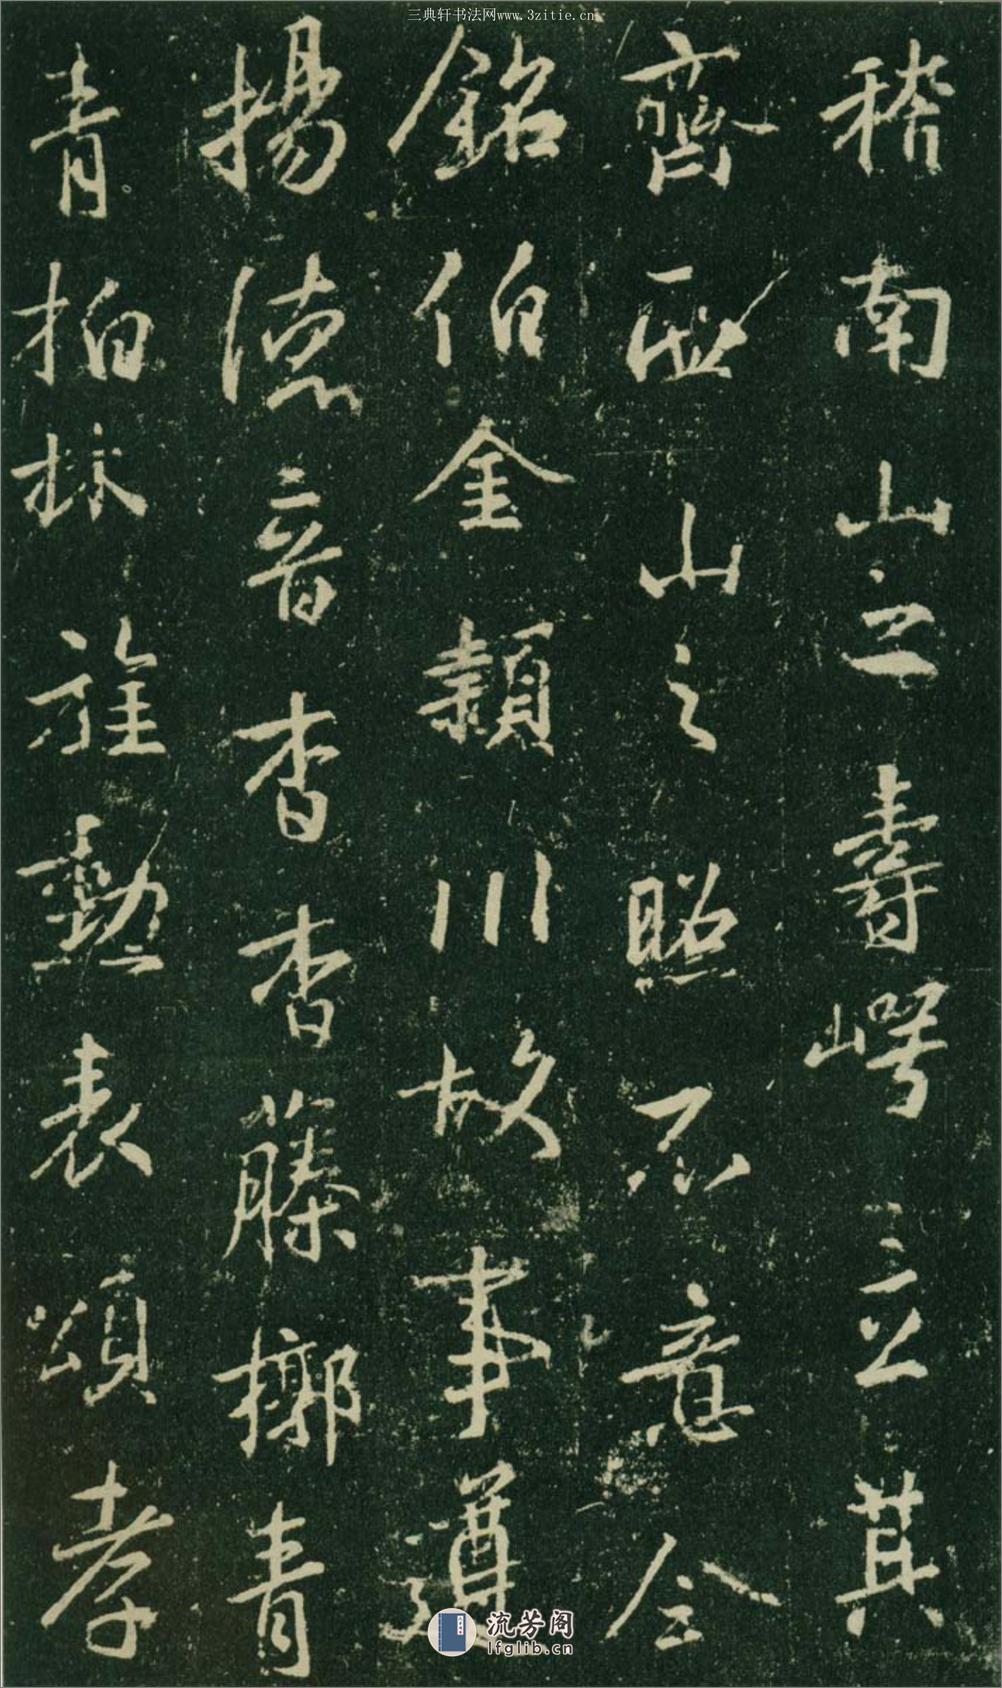 三典轩书法网www.3zitie.cn
南山之壽崿立其
齊丘山之照不意今
銘伯金穎川故事遵
揚德音杳杳藤槨青
青柏林旌勳表頌孝
流芳阁
lfglib.cn